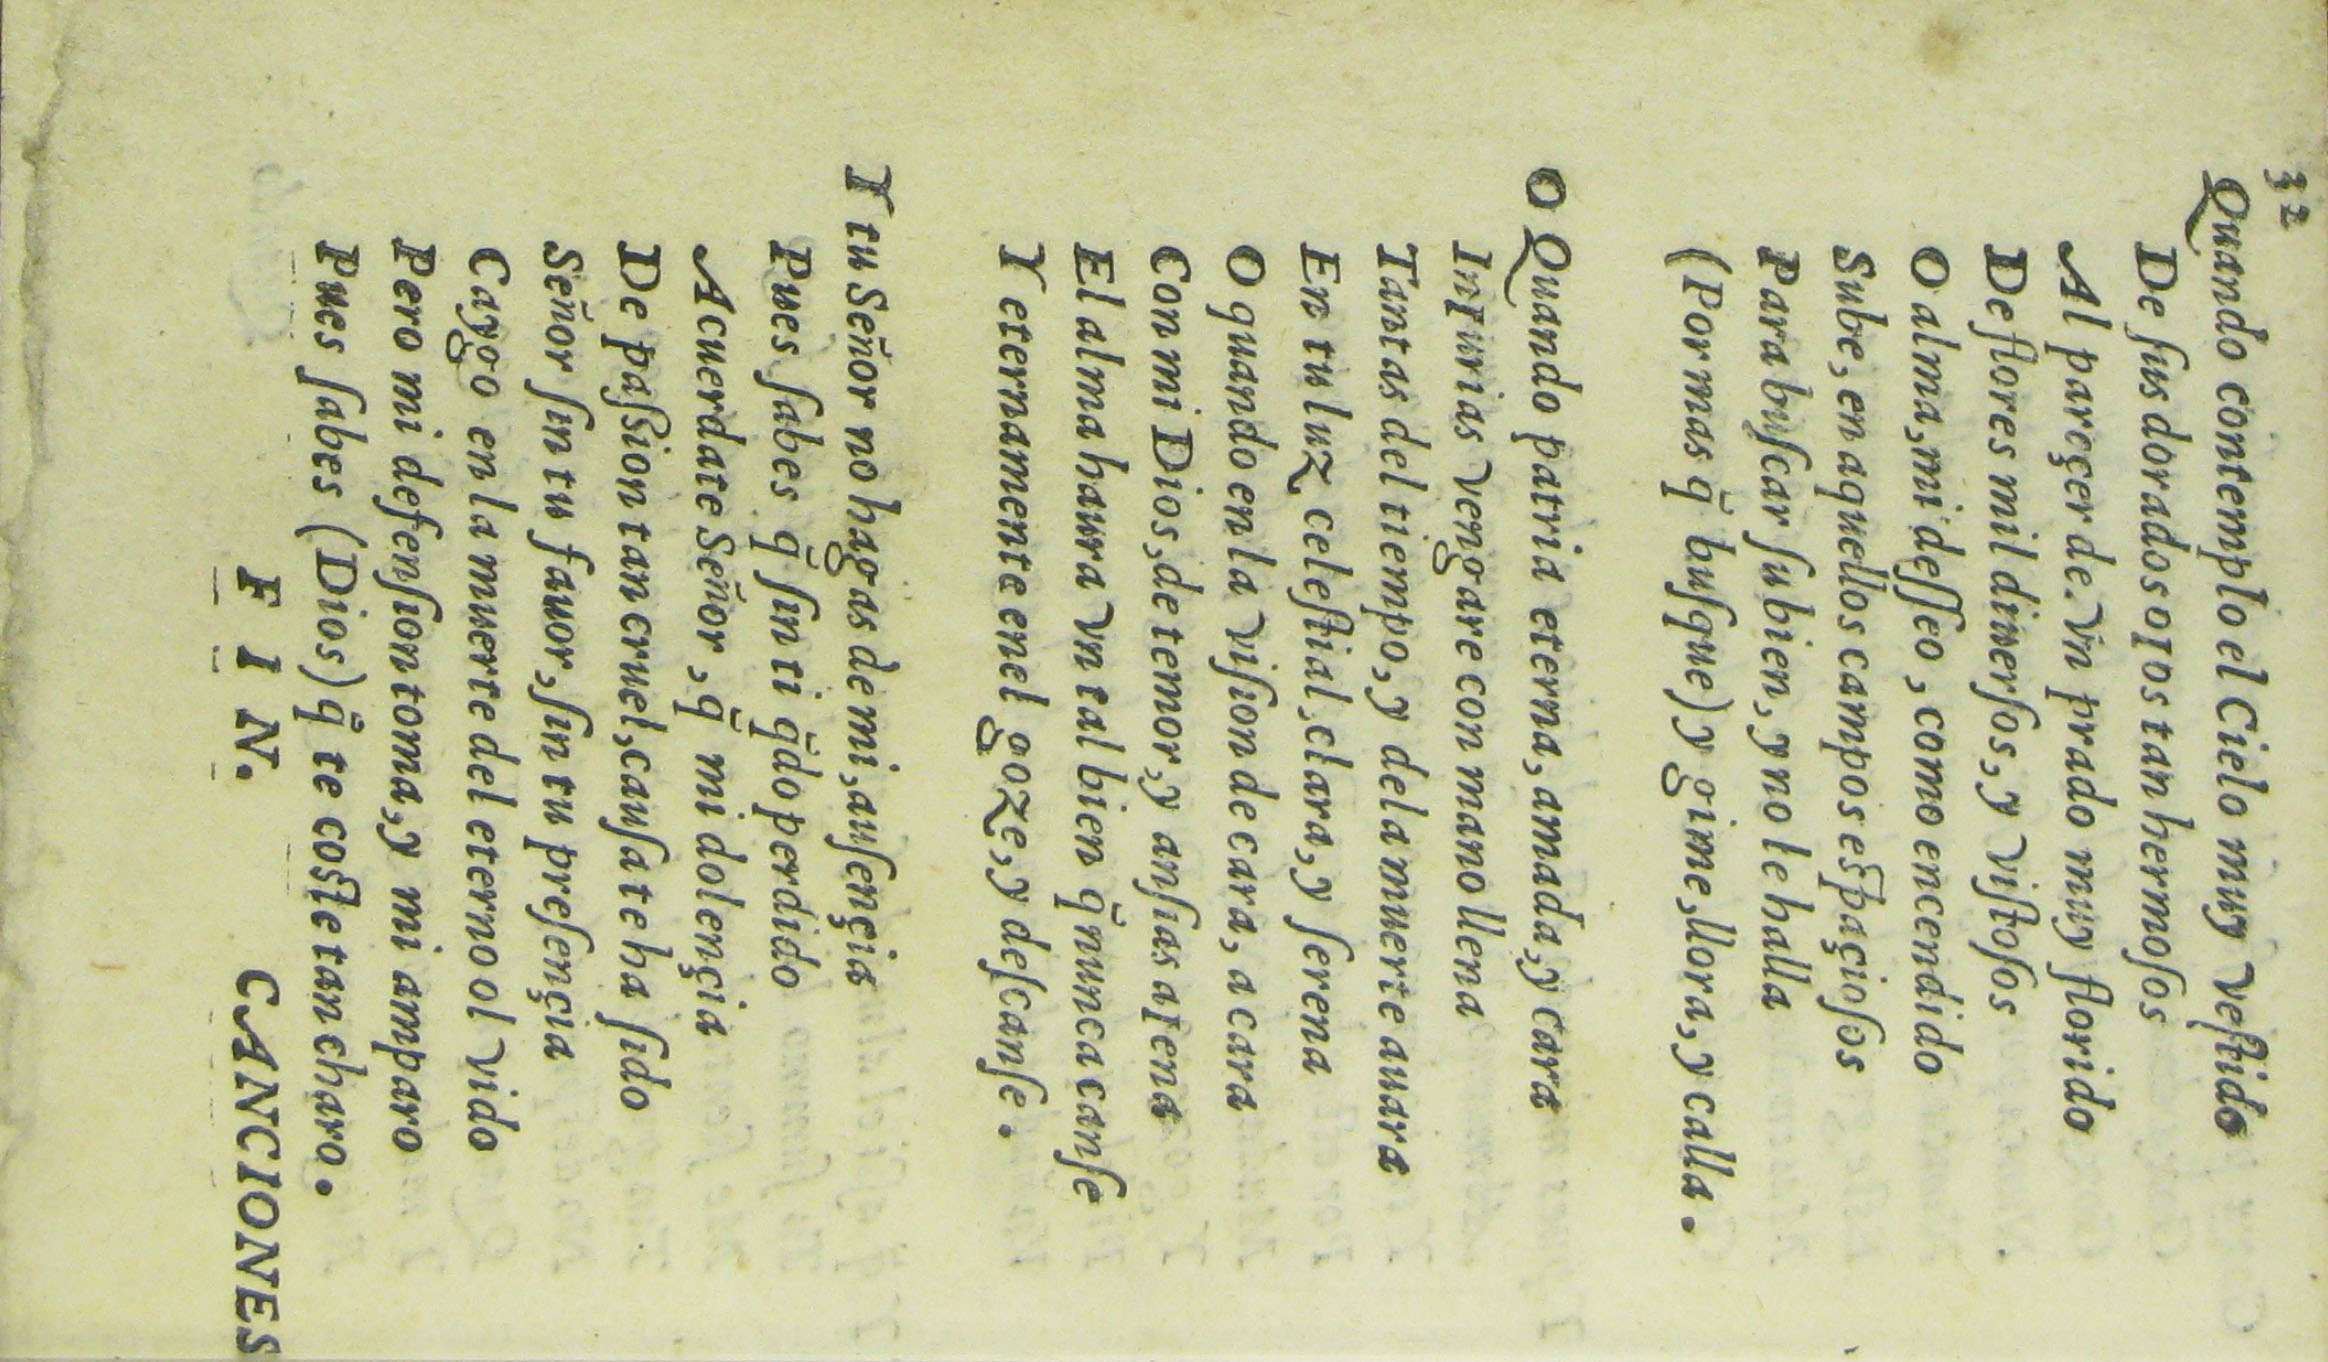 32
Quando contemplo el Cielo muy veſtido
De ſus dorados oIos tan hermoſos
Al parçer de. vn prado muy florido
De flores mil diuerſos, y viſtoſos
O alma, mi deſſeo, como encendido
Sube, en aquellos campos eſpaçioſos
Para buſcar ſu bien, y no le halla
(Por mas q̃ buſque) y gime, llora, y calla.
O Quando patria eterna, amada, y cara
InIurias vengare con mano llena
Tantas del tiempo, y dela muerte auara
En tu luz celeſtial, clara, y ſerena
O quando en la viſion de cara, a cara
Con mi Dios, de temor, y anſias aIena
El alma haura vn tal bien q̃ nunca canſe
Y eternamente enel goze, y deſcanſe.
Y tu Señor no hagas de mi, auſençia
Pues ſabes q̃ ſin ti q̃do perdido
Acuerdate Señor, q̃ mi dolençia
De paſsion tan cruel, cauſa te ha ſido
Señor ſin tu fauor, ſin tu preſençia
Caygo en la muerte del eterno ol vido
Pero mi defenſion toma, y mi amparo
Pues ſabes (Dios) q̃ te coſte tan charo.
F I N.
CANCIONES